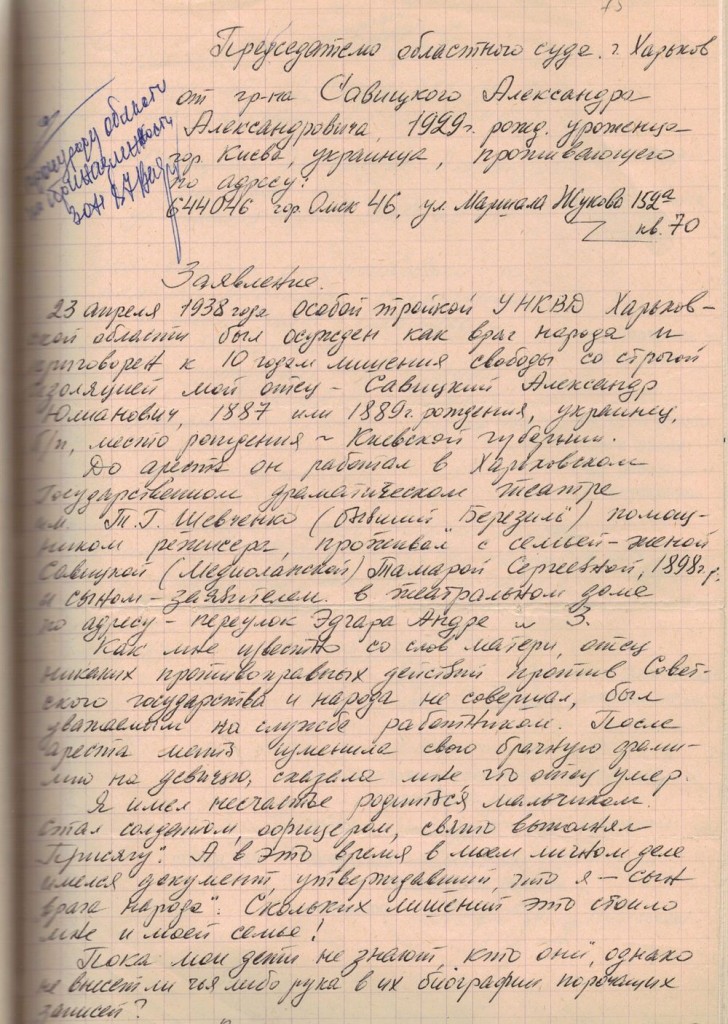 73
Председателю областного суда г. Харьков
от гр-на Савицкого Александра
Александровича, 1929г. рожд. уроженца
гор. Киева, украинца, проживающего
по адресу:
644046 гор. Омск 46, ул. Маршала Жукова 152а
кв. 70
Прокурору области
по принадлежности
Заявление.
23 апреля 1938 года Особой тройкой УНКВД Харьков-
ской области был осужден как враг народа и
приговорен к 10 годам лишения свободы со строгой
изоляцией мой отец - Савицкий Александр
Юлианович, 1887 или 1889г. рождения, украинец,
б/п, место рождения ~ Киевской губернии.
До ареста он работал в Харьковском
Государственном драматическом театре
им. Т.Г. Шевченко (бывший "Березиль") помощ-
ником режисера, проживал с семьей - женой
Савицкой (Медиоланской) Тамарой Сергеевной, 1898г.р.
и сыном - заявителем в театральном доме
по адресу - переулок Эдгара Андре № 3.
Как мне известно со слов матери, отец
никаких противоправных действий против Совет-
ского государства и народа не совершал, был
уважаемым на службе работником. После
ареста мать изменила свою брачную фами-
лию на девичью, сказала мне что отец умер.
Я имел несчастье родиться мальчиком.
Стал солдатом, офицером, свято выполнял
"Присягу". А в это время в моем личном деле
имелся документ, утверждавший, что я - "сын
врага народа". Скольких лишений это стоило
мне и моей семье!
Пока мои дети не знают, "кто они", однако
не внесет ли чья либо рука в их биографии порочащих
записей?